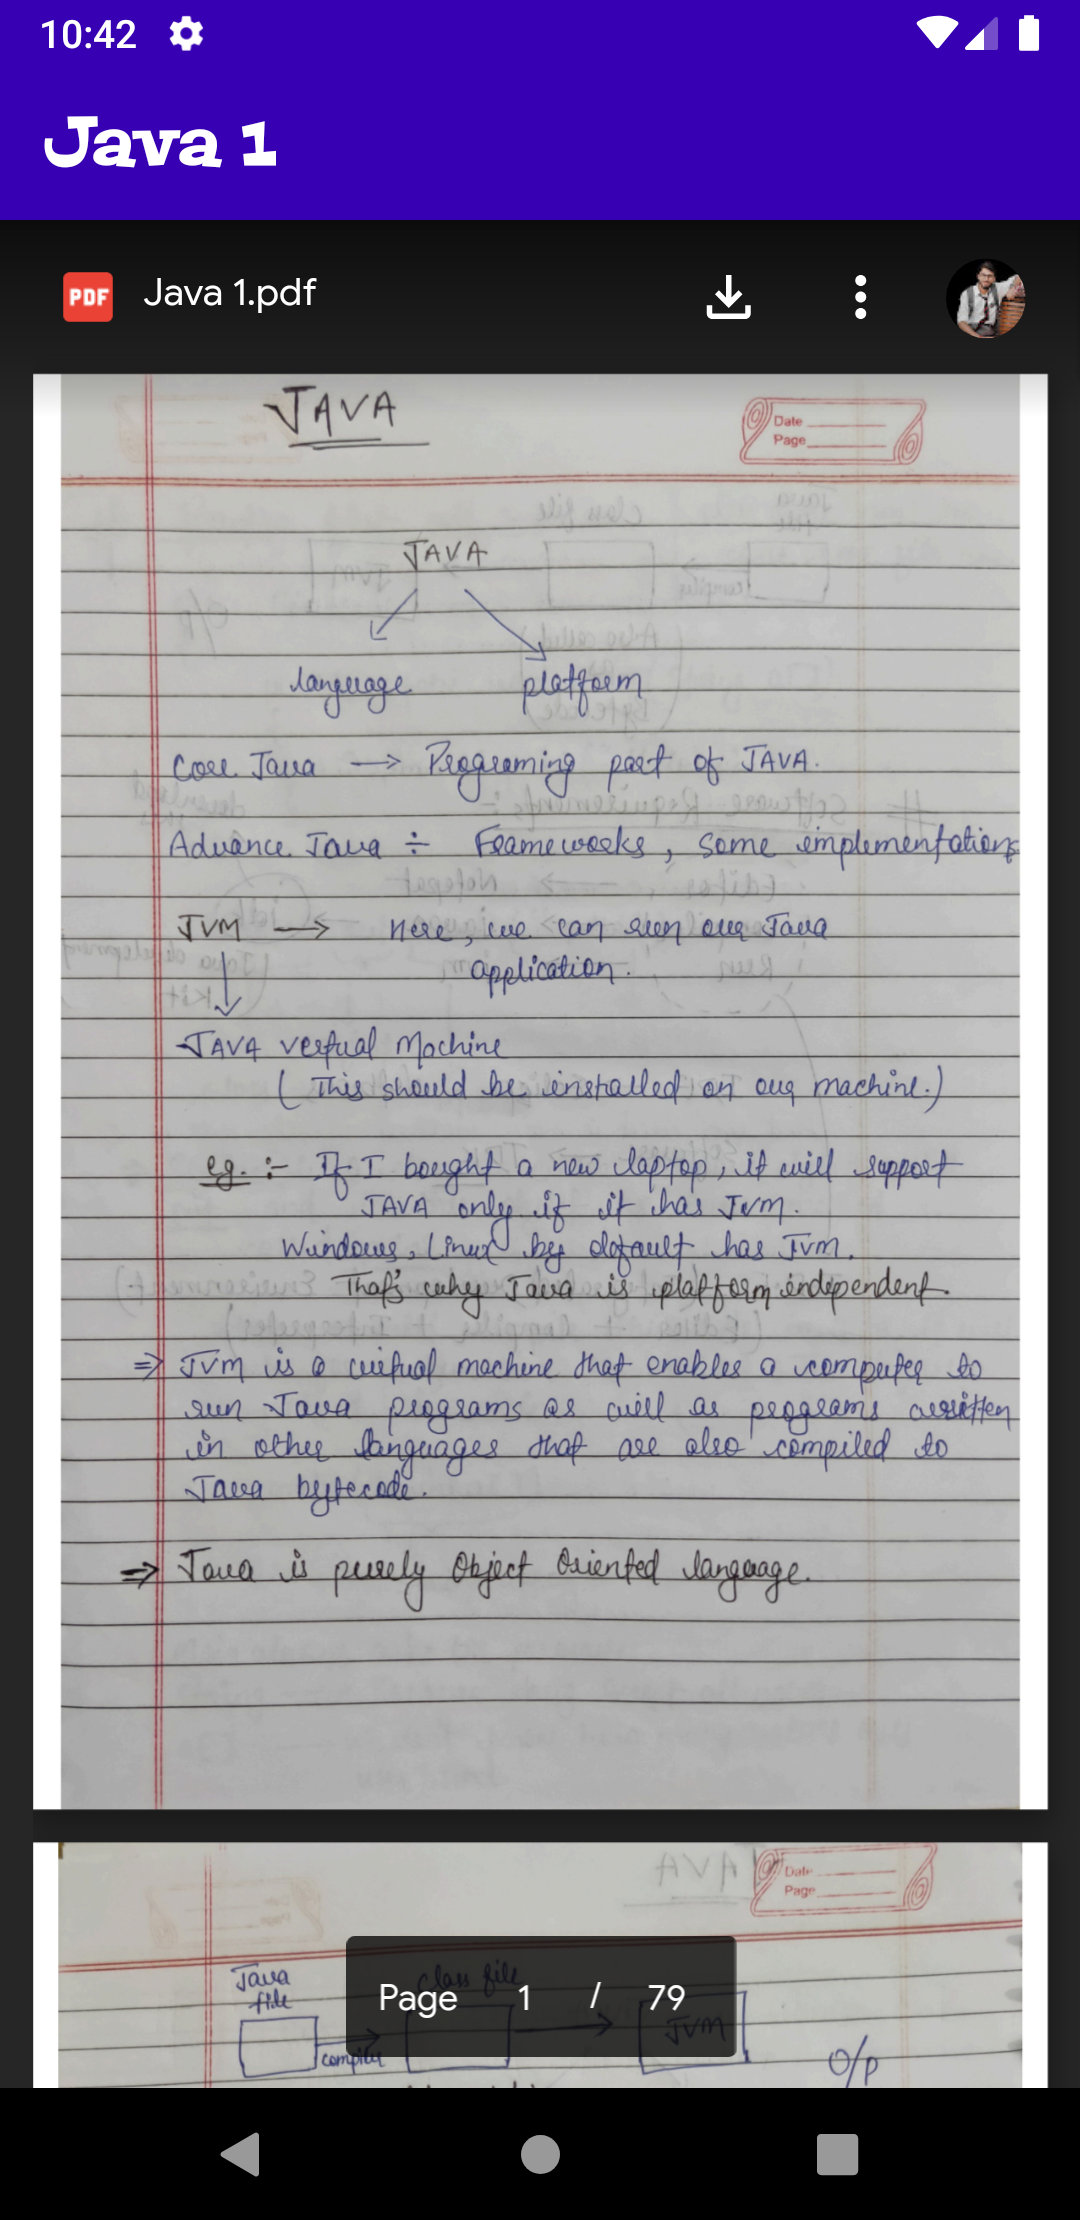 10:42
Java 1
PDF Java 1.pdf
JAVA
Date
Page
JAVA
language platform
Core Java → Programing part of JAVA.
Advance Java ÷ Frameworks, Some implementations
JVM → Here, we can run our Java
application.
JAVA vertual Machine
( This should be installed on our machine.)
eg. :- If I bought a new laptop, it will support
JAVA only if it has JVM.
Windows, Linux by default has JVM.
That's why Java is platform independent.
⇒ JVM is a virtual machine that enables a computer to
run Java programs as well as programs written
in other languages that are also compiled to
Java bytecode.
⇒ Java is purely Object Oriented language.
Date
Page
Java class file
file
Page 1 / 79
JVM
compiler
O/P